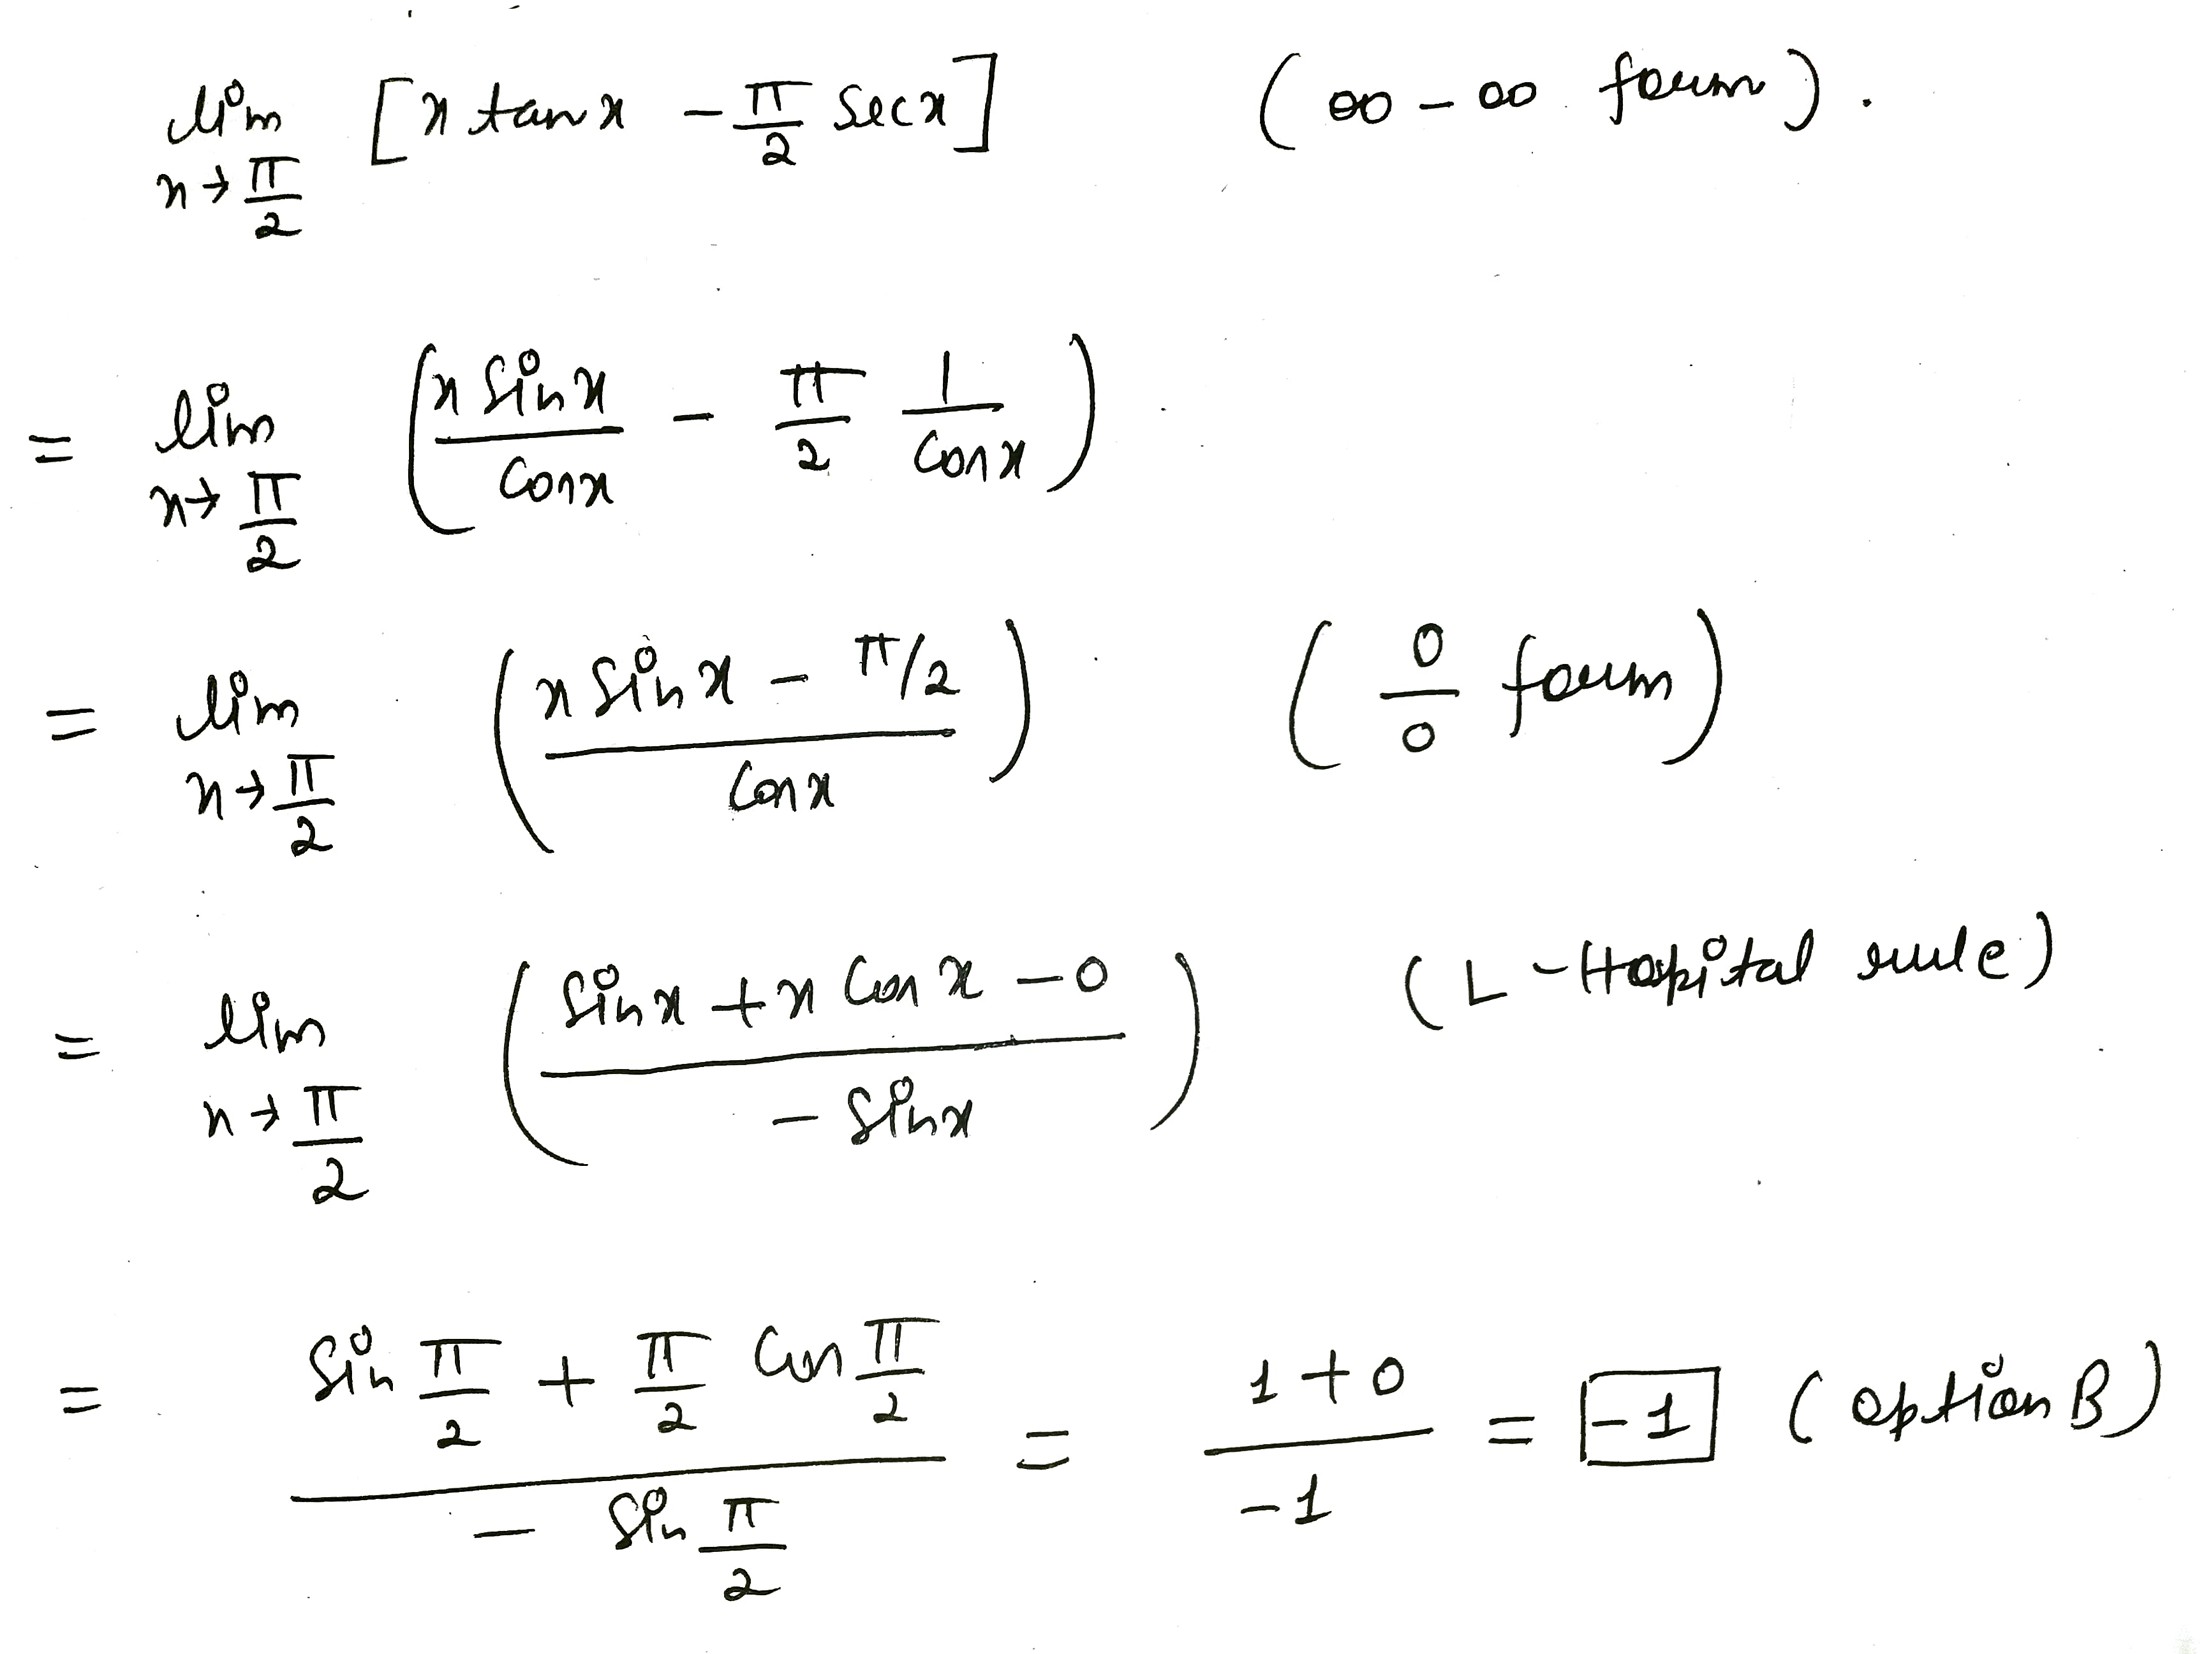 lim x→π/2 [x tan x - π/2 sec x] (∞ - ∞ form).
= lim x→π/2 (x sin x / cos x - π/2 1/cos x)
= lim x→π/2 (x sin x - π/2 / cos x) (0/0 form)
= lim x→π/2 (sin x + x cos x - 0 / - sin x) (L-Hopital rule)
= sin π/2 + π/2 cos π/2 / - sin π/2 = 1+0 / -1 = -1 (option B)